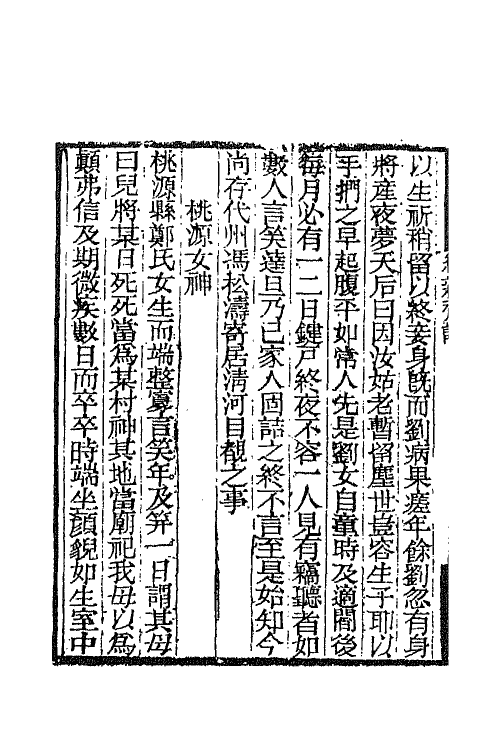 以生祈稍留以終妾身旣而劉病果瘥年餘劉忽有身
將産夜夢天后曰因汝姑老暫留塵世豈容生子耶以
手捫之早起腹平如常人先是劉女自童時及適閻後
每月必有一二日鍵戸終夜不容一人見有竊聽者如
數人言笑達旦乃已家人固詰之終不言至是始知今
尚存代州馮松濤寄居淸河目覩之事
桃源女神
桃源縣鄭氏女生而端整寡言笑年及笄一日謂其母
曰兒將某日死死當爲某村神其地當廟祀我母以爲
顚弗信及期微疾數日而卒卒時端坐顔貌如生室中